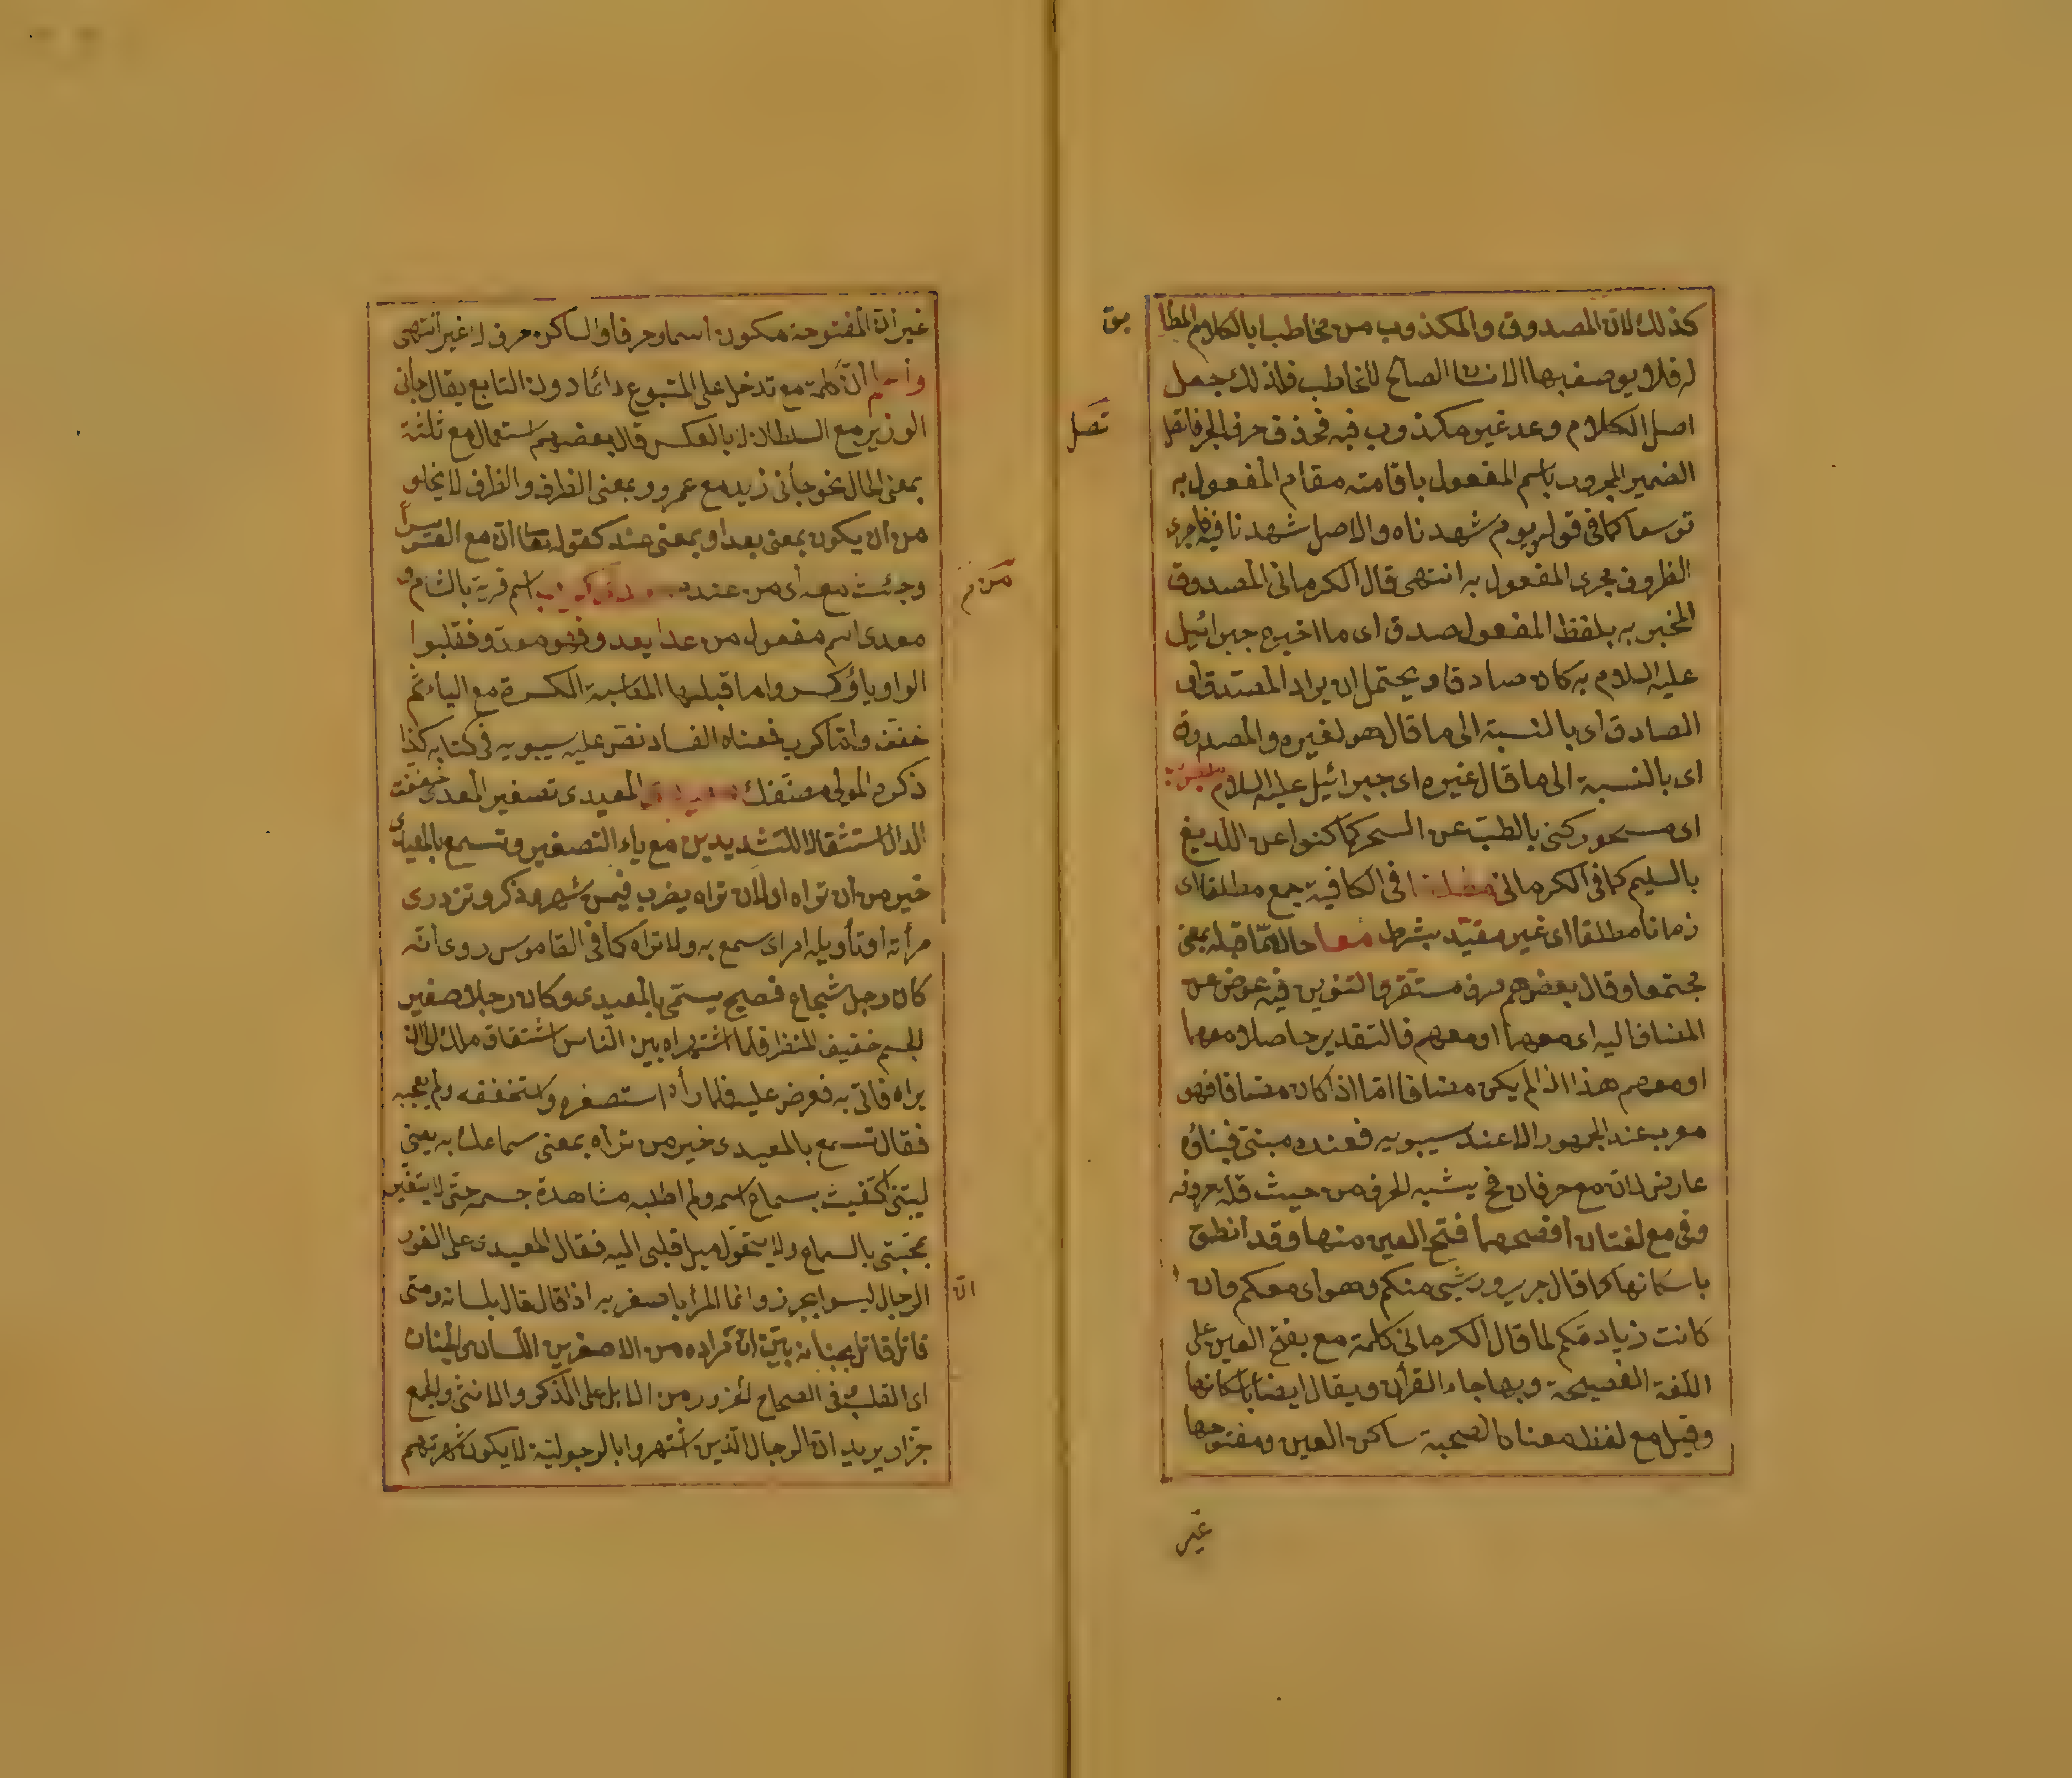 كذلك لان المصدوق والمكذوب من مخاطب بالكلام المطا
بق
له فلا يوصف بها الا الانسان الصالح للخاطب فلذلك جعل
اصل الكلام وعد غير مكذوب فيه فحذف حرف الجر فاتصل
تصل
الضمير المجرور باسم المفعول باقامته مقام المفعول به
توسعا كما في قوله يوم شهدناه والاصل شهدنا فيه فاجرى
الظروف مجرى المفعول به انتهى قال الكرماني المصدوق
المخبر به بلفظ المفعول صدق اى ما اخبره جبرائيل
عليه السلام به كان صادقا ويحتمل ان يراد المصدق اى
الصادق اى بالنسبة الى ما قال هو لغيره والمصدوق
اى بالنسبة الى ما قال غيره اى جبرائيل عليه السلام
اى مسحور كنى بالطب عن السحر كما كنوا عن اللديغ
بالسليم كما في الكرماني مطلقا في الكافية جمع مطلقا اى
زمانا مطلقا اى غير مقيد بشرط معا حال مما قبله بمعنى
مجتمعا وقال بعضهم ظرف مستقر والتنوين فيه عوض عن
المضاف اليه اى معهما او معهم فالتقدير حاصلا معهما
او معهم هذا اذا لم يكن مضافا اما اذا كان مضافا فهو
معرب عند الجمهور الا عند سيبويه فعنده مبنى فبناؤه
عارض لان مع حرفان فح يشبه الحرف من حيث قلة حروفه
وفي مع لغتان افصحهما فتح العين منها وقد انطق
باسكانها كما قال جرير وريشى منكم وهواى معكم وان
كانت زيادتكم لما قال الكرماني كلمة مع بفتح العين على
اللغة الفصيحة وبها جاء القرأن ويقال ايضا باسكانها
وقيل مع لفظ معناه الصحبة ساكن العين ومفتوحها
غير
غير ان المفتوحة تكون اسما وحرفا والساكن حرف لا غير انتهى
واعلم ان كلمة مع تدخل على المتبوع دائما دون التابع يقال جأنى
الوزير مع السلطان لا بالعكس قال بعضهم استعمال مع ثلثة
بمعنى الحال نحو جأنى زيد مع عمرو وبمعنى الظرف والظرف لا يخلو
من ان يكون بمعنى بعد او بمعنى عند كقوله تعا ان مع العسر يسرا
وجئت معه اى من عنده اسم قرية بالشام و
معدى اسم مفعول من عدا يعدو فهو معدو فقلبوا
الواو ياء وكسروا ما قبلها المناسبة الكسرة مع الياء ثم
خفف واما كرب فمعناه الفساد نص عليه سيبويه في كتابه كذا
ذكره المولى مصنفك المعيدى تصغير المعدى خففت
الدال استثقالا للتشديدين مع ياء التصغير وتسمع بالمعيدى
خير من ان تراه او لان تراه يضرب فيمن شهر وذكر وتزدرى
مرأته او تأويله امر اى سمع به ولا تراه كما في القاموس روى انه
كان رجل شجاع فصيح يسمى بالمعيدى وكان رجلا صغير
الجسم خفيف المنظر فلما اشتهر اه بين الناس اشتقاق ملك الى ان
يراه فاتى به فعرض عليه فلما رأه استصغره واستخففه ولم يعجبه
فقال تسمع بالمعيدى خير من تراه بمعنى سماعك به يعنى
ليتنى اكتفيت بسماع اسمه ولم اطلبه مشاهدة جسمه حتى لا يتغير
محبتى بالسماع ولا يتحول ميل قلبى اليه فقال المعيدى على الفور
الرجال ليسوا بجزر وانما المرأ باصغريه اذا قال قال بلسانه ومتى
ان
قاتل قاتل بجنانه بين ان مراده من الاصغرين اللسان والجنان
اى القلب وفي الصحاح الجزور من الابل على الذكر والانثى والجمع
جزر اد يريد ان الرجال الذين اشتهروا بالرجولية لا يكون شهرتهم